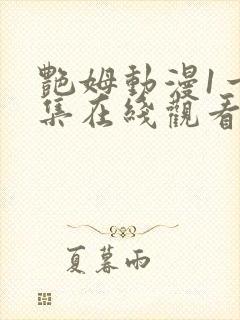 艷姆動漫1一
集在綫觀看
夏暮雨